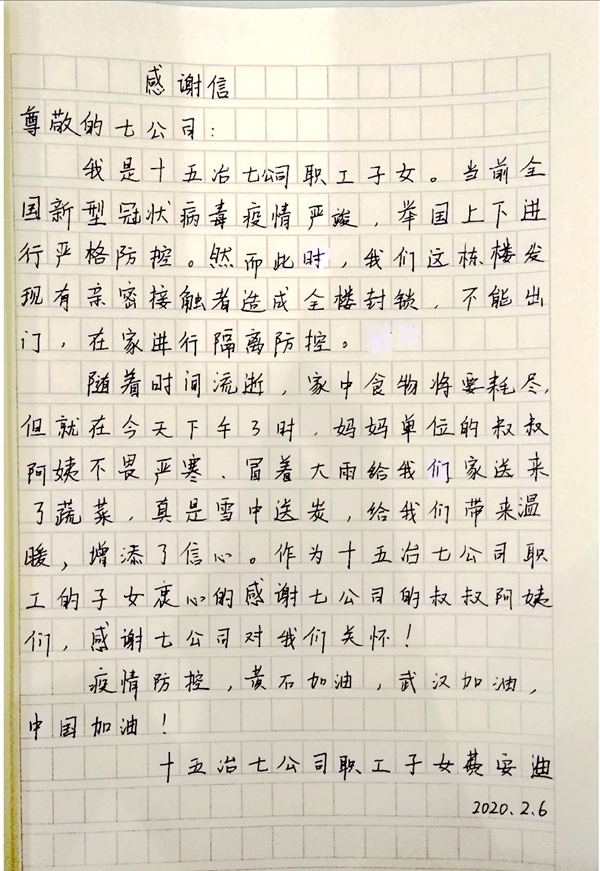 感谢信
尊敬的七公司：
我是十五冶七公司职工子女。当前全
国新型冠状病毒疫情严峻，举国上下进
行严格防控。然而此时，我们这栋楼发
现有亲密接触者造成全楼封锁，不能出
门，在家进行隔离防控。
随着时间流逝，家中食物将要耗尽，
但就在今天下午3时，妈妈单位的叔叔
阿姨不畏严寒、冒着大雨给我们家送来
了蔬菜，真是雪中送炭，给我们带来温
暖，增添了信心。作为十五冶七公司职
工的子女衷心的感谢七公司的叔叔阿姨
们，感谢七公司对我们关怀！
疫情防控，黄石加油，武汉加油，
中国加油！
十五冶七公司职工子女龚安迪
2020.2.6